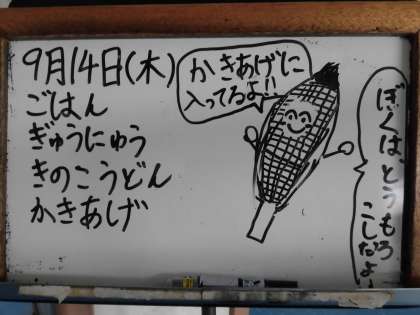 9月14日(木)
ごはん
ぎゅうにゅう
きのこうどん
かきあげ
かきあげに
入ってるよ!!
ぼくは、とうもろ
こしだよ